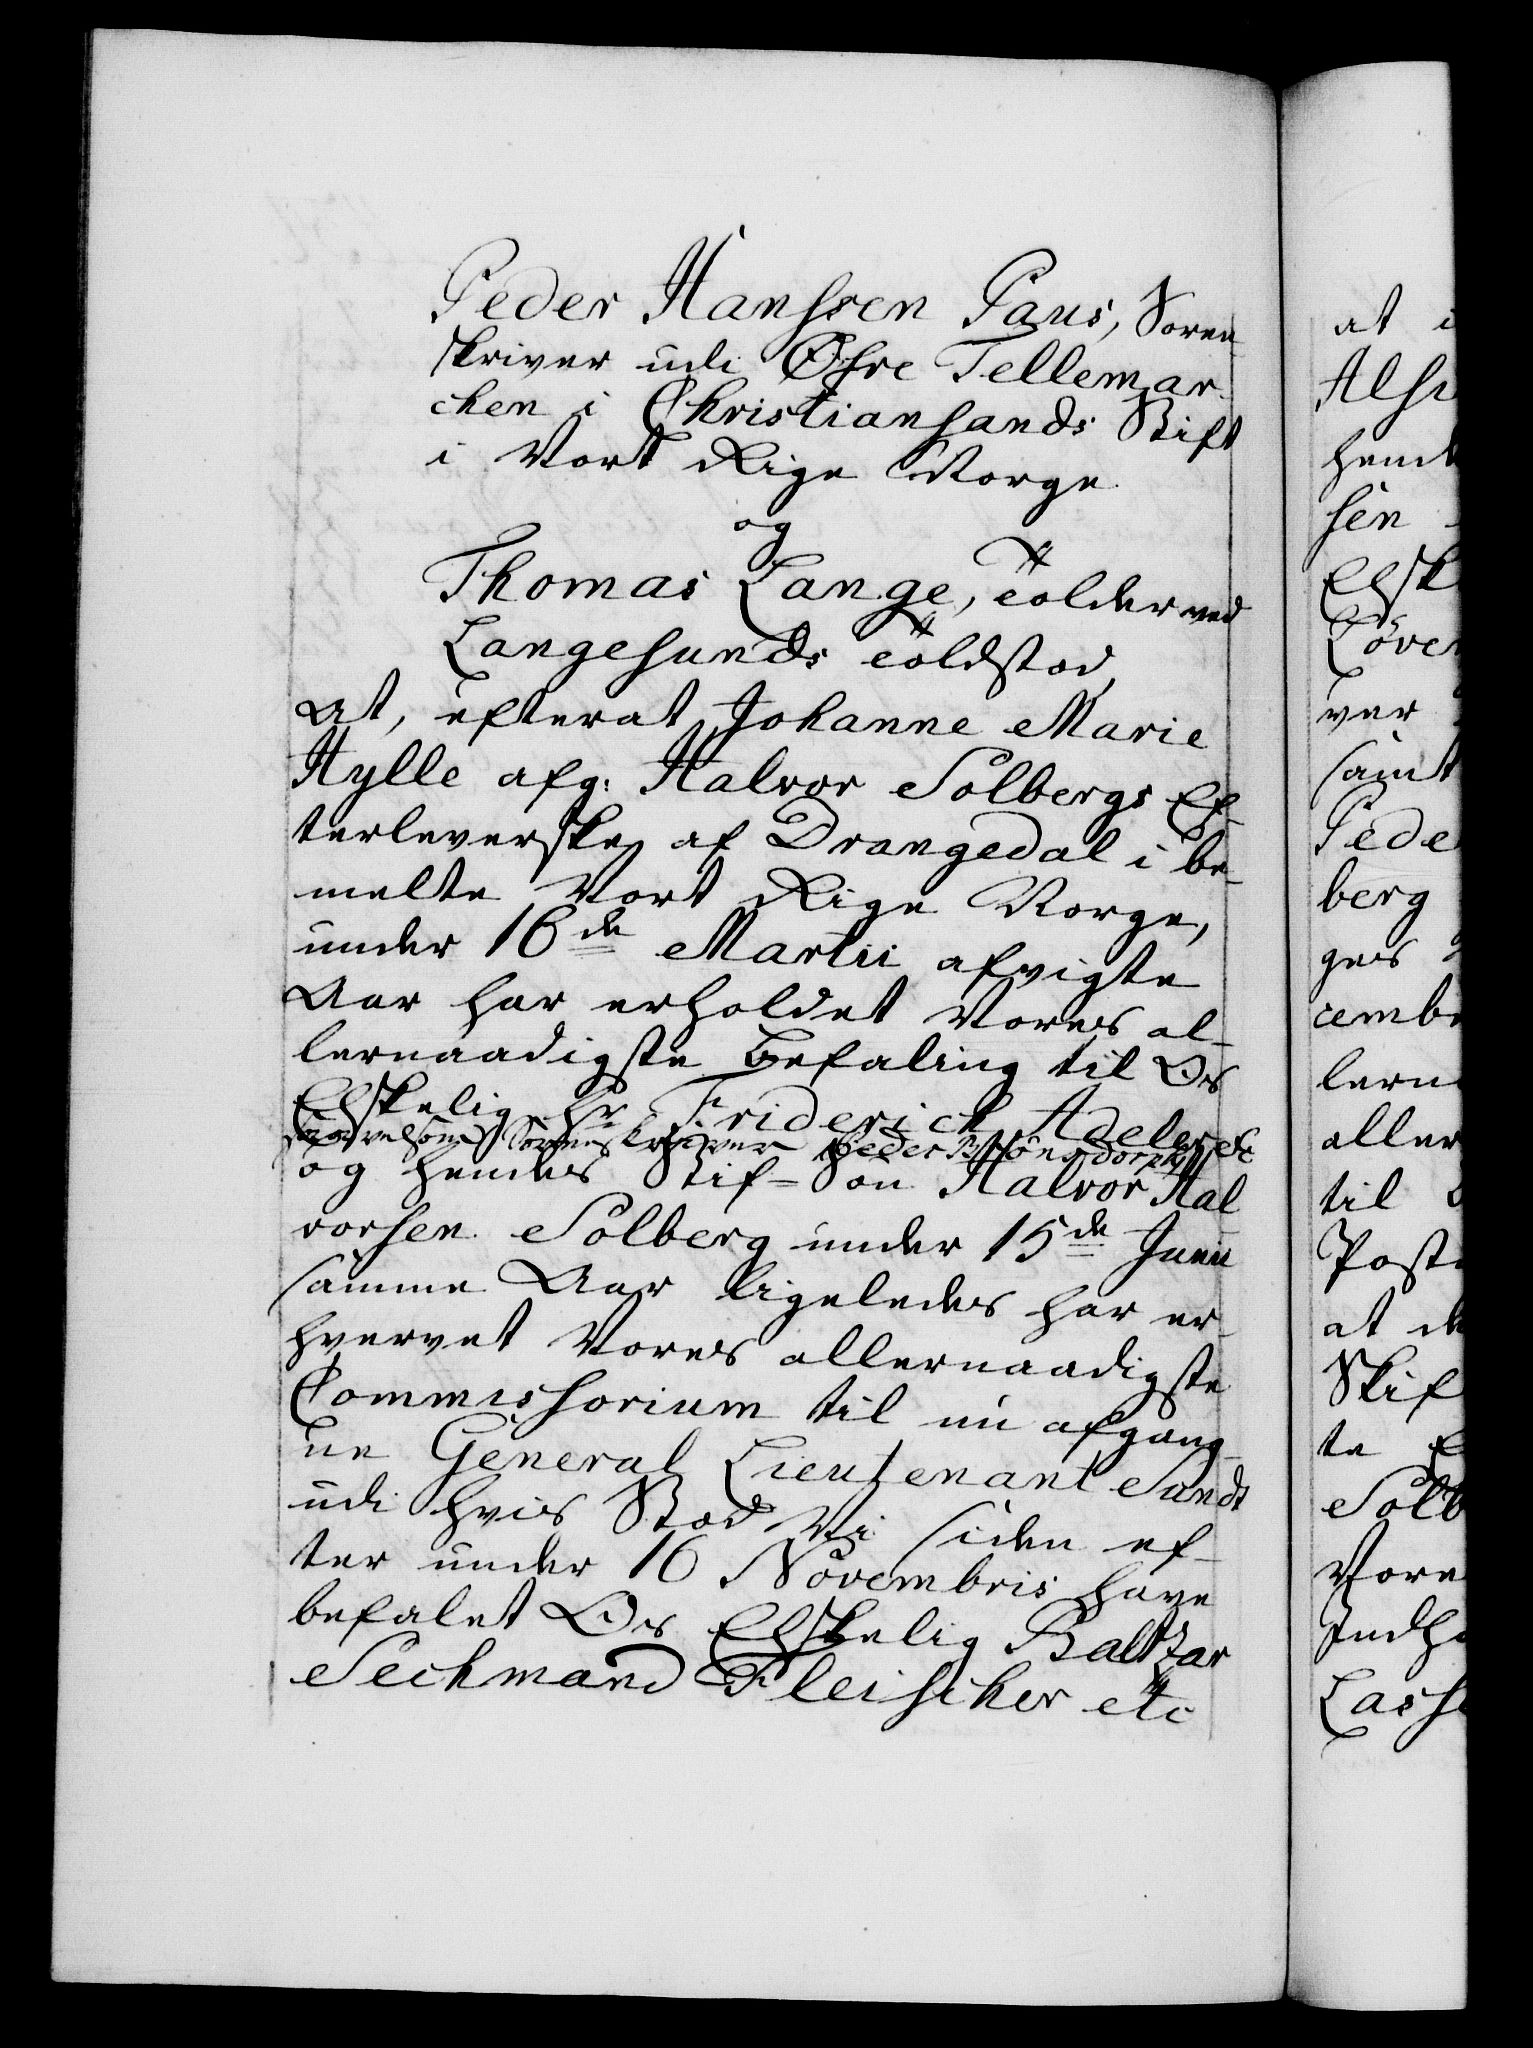 Peder Hanssen Paus, Soren-
skriver udi Øfre Tellemar-
chen i Christiansands Stift
i Vort Rige Norge.
og
Thomas Lange, Tolder ved
Langesunds Toldsted,
At, efterat Johanne Marie
Hylle afg: Halvor Solbergs Ef-
terleverske af Drangedal i be-
melte Vort Rige Norge,
under 16de Martii afvigte
Aar har erholdet Vores al-
lernaadigste Befaling til Os
Elskelig Hr Friderich Adeler etc
saavelsom Sorenskriver Peder
og hendes Stif-Søn Halvor Hal
vorsen Solberg under 15de Junii
samme Aar ligeledes har er-
hvervet Vores allernaadigste
Commissorium til nu afgang-
ne General Lieutenant Sundt
udi hvis Sted Vi siden ef-
ter under 16 Novembris have
befalet Os Elskelig Baltzar
Sechmand Fleischer etc
at i
hend
sen
Elsk
Löven
ver
samt
Pede
berg
ges
cembr
lerna
aller
til
Post
at de
Skif
te
Solb
Vore
Indh
Lass